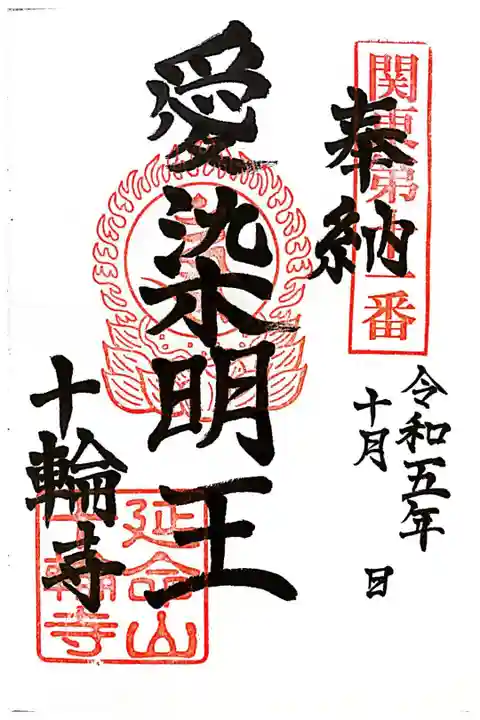 関東第十一番
奉納
令和五年
十月　日
愛染明王
十輪寺
延命山
十輪寺